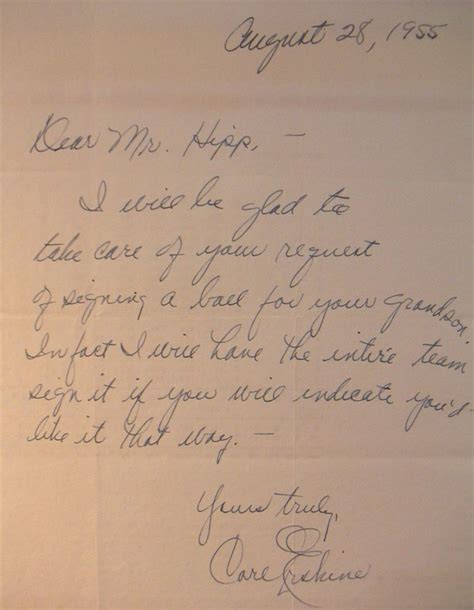 August 28, 1955
Dear Mr. Hipp, —
I will be glad to
take care of your request
of signing a ball for your grandson.
In fact I will have the intire team
sign it if you will indicate you'd
like it that way. —
Yours truly,
Carl Erskine